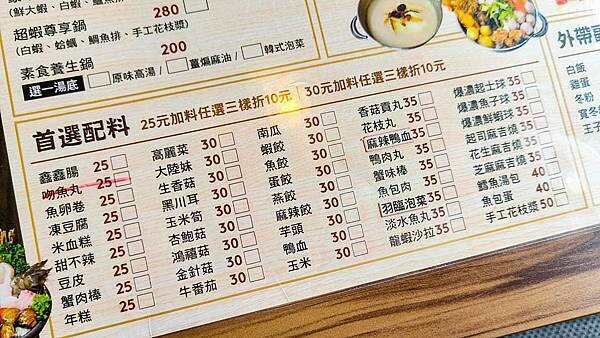 (鮮大蝦、白蝦、
280
超蝦尊享鍋
(白蝦、蛤蠣、鯛魚排、手工花枝漿)
素食養生鍋 200
選一湯底 原味高湯/ 薑煸麻油/ 韓式泡菜
首選配料 25元加料任選三樣折10元 30元加料任選三樣折10元
鑫鑫腸 25
吻魚丸 25
魚卵卷 25
凍豆腐 25
米血糕 25
甜不辣 25
豆皮 25
蟹肉棒 25
年糕 25
高麗菜 30
大陸妹 30
生香菇 30
黑川耳 30
玉米筍 30
杏鮑菇 30
鴻禧菇 30
金針菇 30
牛番茄 30
南瓜 30
蝦餃 30
魚餃 30
蛋餃 30
燕餃 30
麻辣餃 30
芋頭 30
鴨血 30
玉米 30
香菇貢丸 35
花枝丸 35
麻辣鴨血 35
鴨肉丸 35
蟹味棒 35
魚包肉 35
羽臨泡菜 35
淡水魚丸 35
龍蝦沙拉 35
爆濃起士球 35
爆濃魚子球 35
爆濃鮮蝦球 35
起司麻吉燒 35
花生麻吉燒 35
芝麻麻吉燒 35
鱈魚湯包 40
魚包蛋 40
手工花枝漿 50
外帶
白飯
雞蛋
冬粉
寬冬
王子